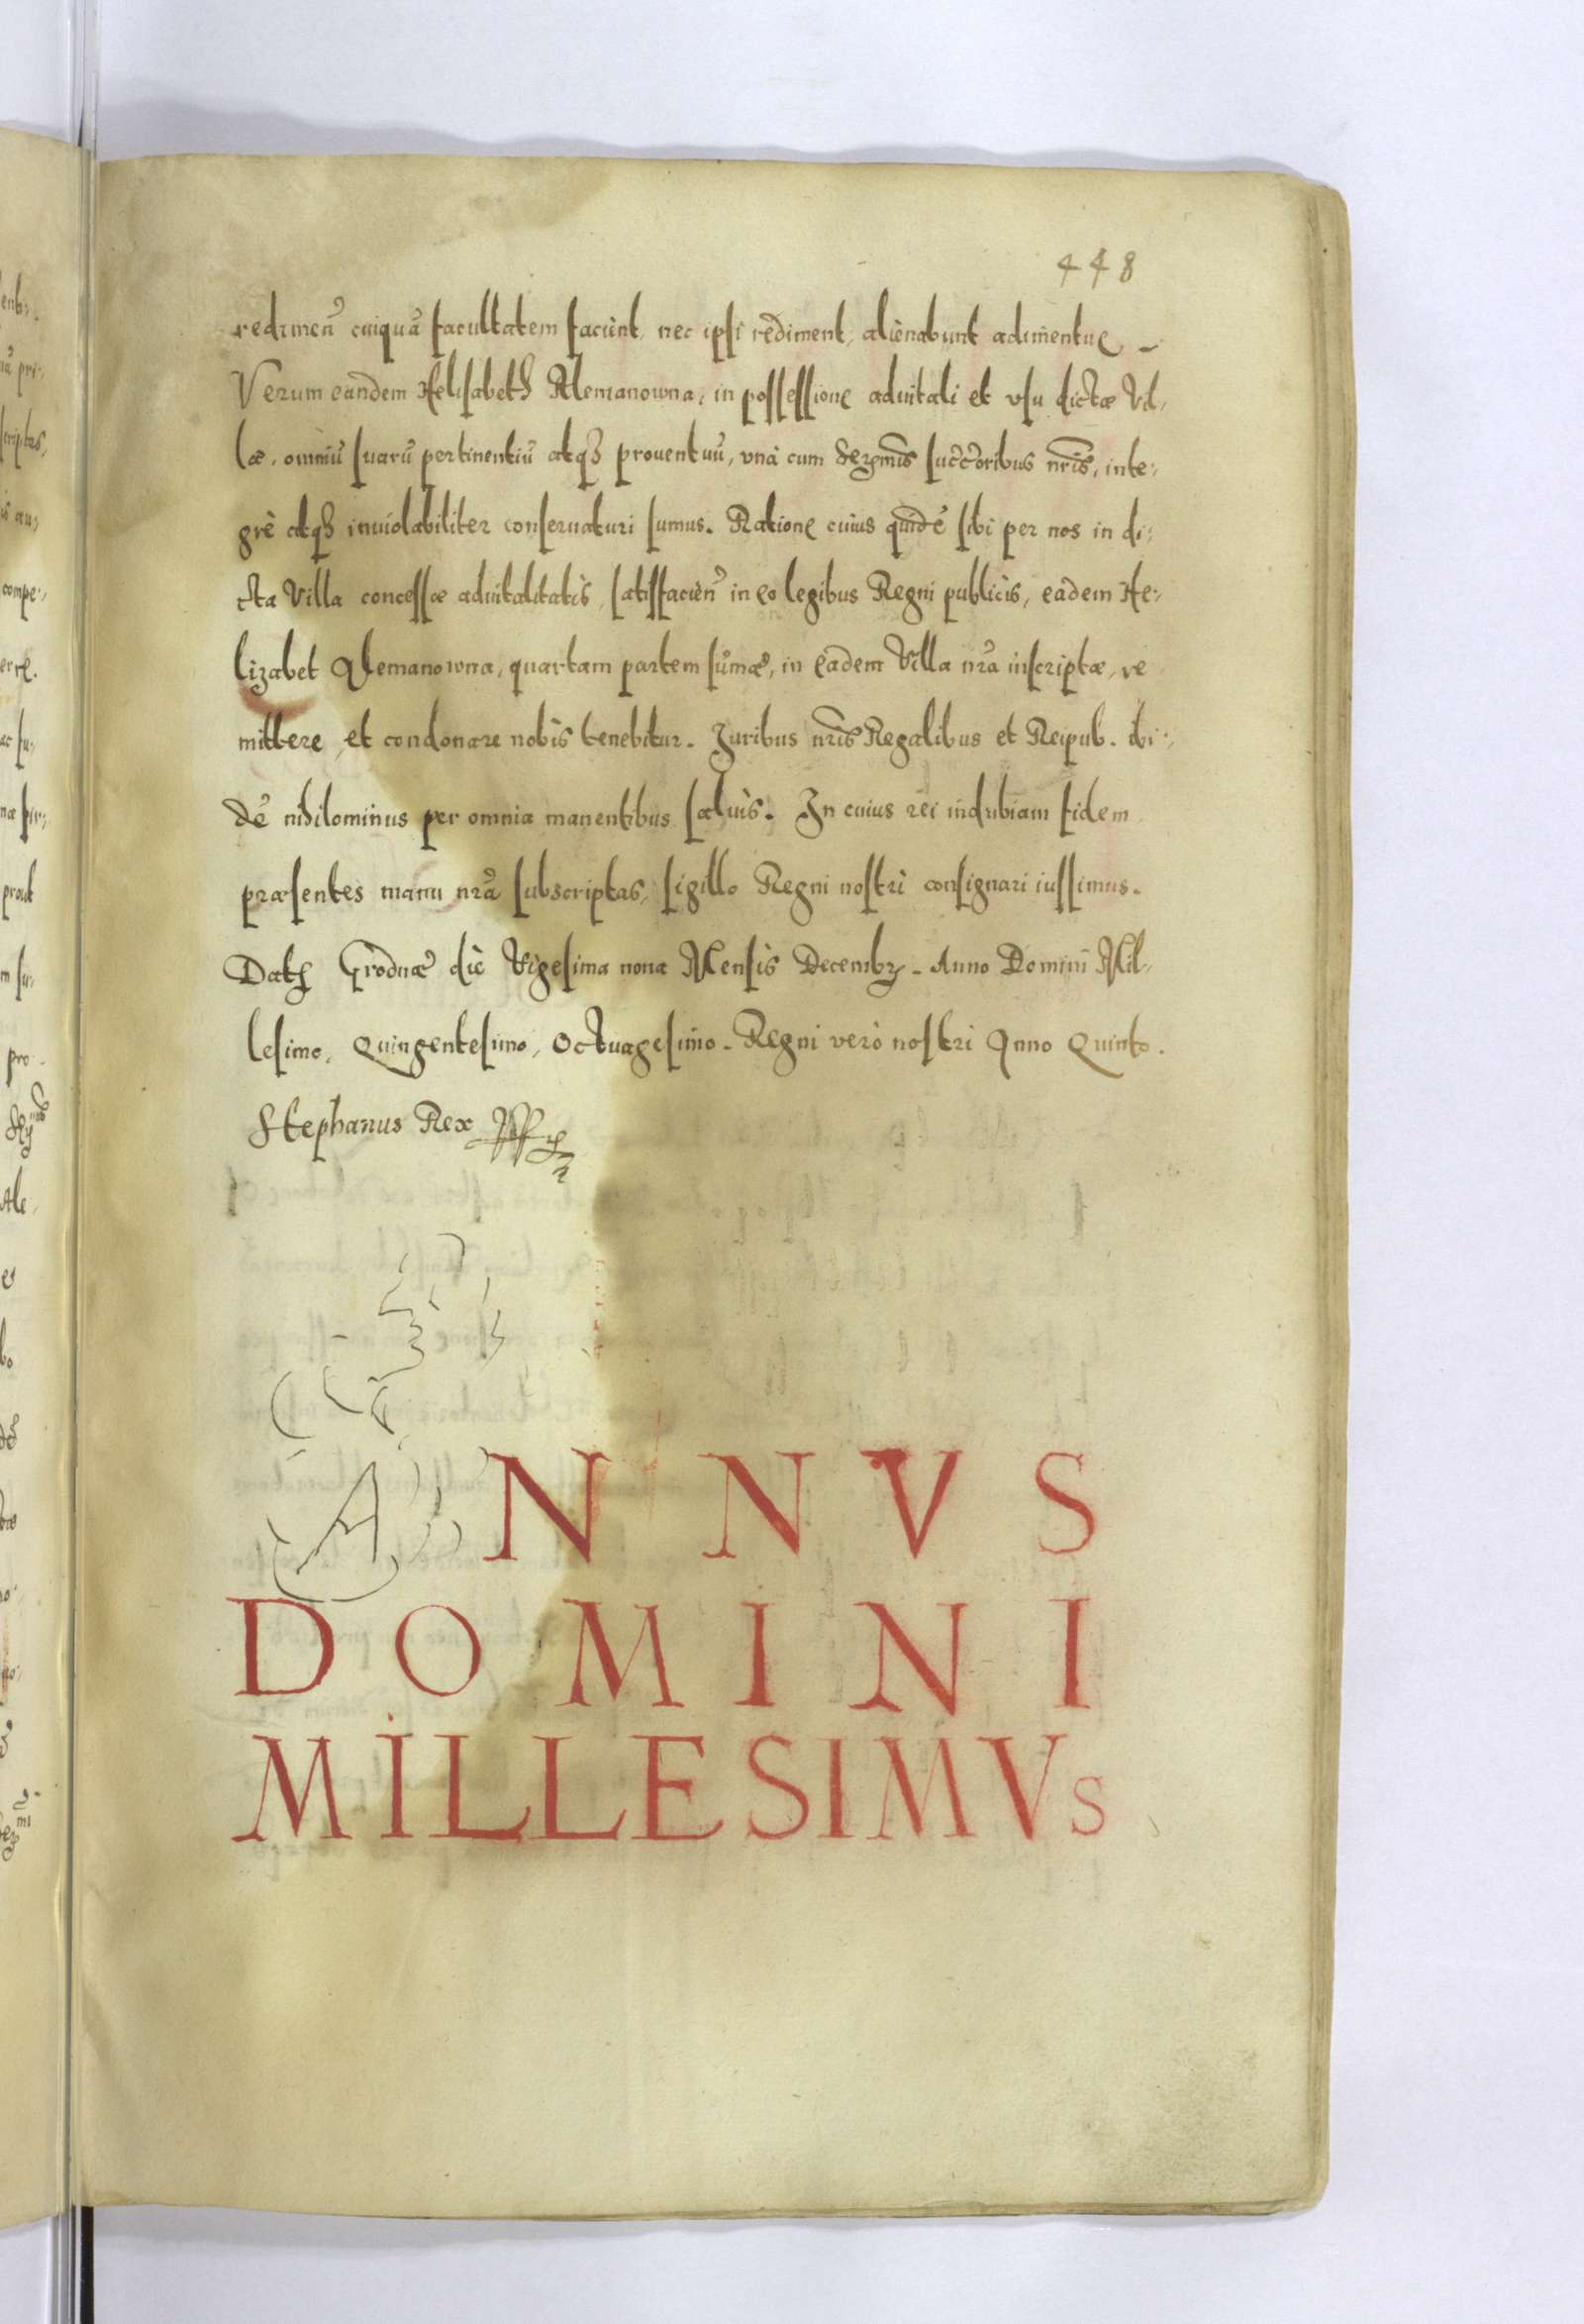 448
redimen̄ cuiquā facultatem faciēnt, nec ipsi rediment, alienabunt adimentue
Verum eandem Helisabeth Alemanowna, in possessione aduitali et vsu dictæ Vil,
læ, omniū suarū pertinentiū atqꝫ prouentuū, vnà cum Serenmis̄ succ̄oribus nr̄is, inte:
grè atqꝫ inuiolabiliter conseruaturi sumus. Ratione cuius quidē sibi per nos in di:
cta Villa concessæ aduitalitatis, satisfacien̄ in eo legibus Regni publicis, eadem He:
lizabet Alemanowna, quartam partem sūmæ, in eadem Villa nr̄a inscriptæ, re
mittere, et condonare nobis tenebitur. Juribus nr̄is Regalibus et Reipub. ibi:
dē nihilominus per omnia manentibus saluis. In cuius rei indubiam fidem
præsentes manu nr̄a subscriptas, sigillo Regni nostri consignari iussimus.
Datꝭ Grodnæ die Vigesima nona Mensis Decembꝝ. Anno Domini Mil,
lesimo, Quingentesimo, Octuagesimo. Regni verò nostri Anno Quinto.
Stephanus Rex
ANNVS
DOMINI
MILLESIMVs